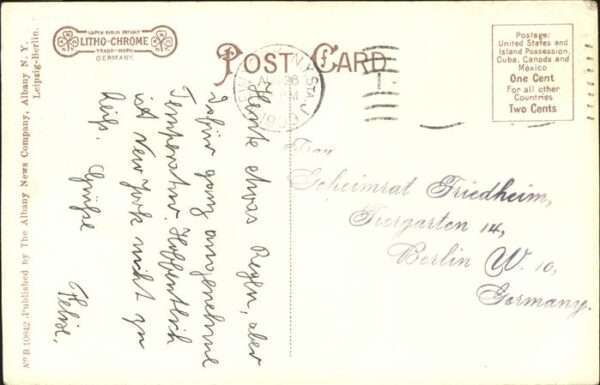 LITHO-CHROME
TRADE-MARK
GERMANY.
POST CARD
Postage:
United States and
Island Possession,
Cuba, Canada and
Mexico
One Cent
For all other
Countries
Two Cents
No B 10842. Published by The Albany News Company, Albany N. Y.
Leipzig-Berlin.
Heute etwas Regen, aber
dafür ganz angenehme
Temperatur. Hoffentlich
ist New York nicht zu
heiß. Grüße
Frau
Geheimrat Friedheim,
Tiergarten 14,
Berlin W. 10,
Germany.